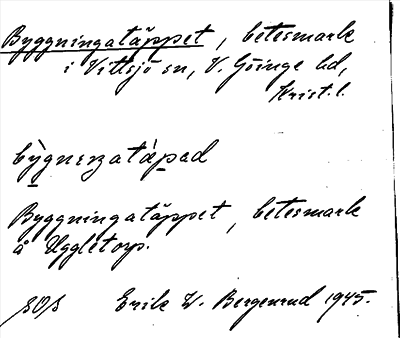 Byggningatäppet, betesmark
i Vittsjö sn, V. Göinge hd,
Krist. l.
Byggningatäppet, betesmark
å Uggletorp.
SOS Erik W. Bergenrud 1945.